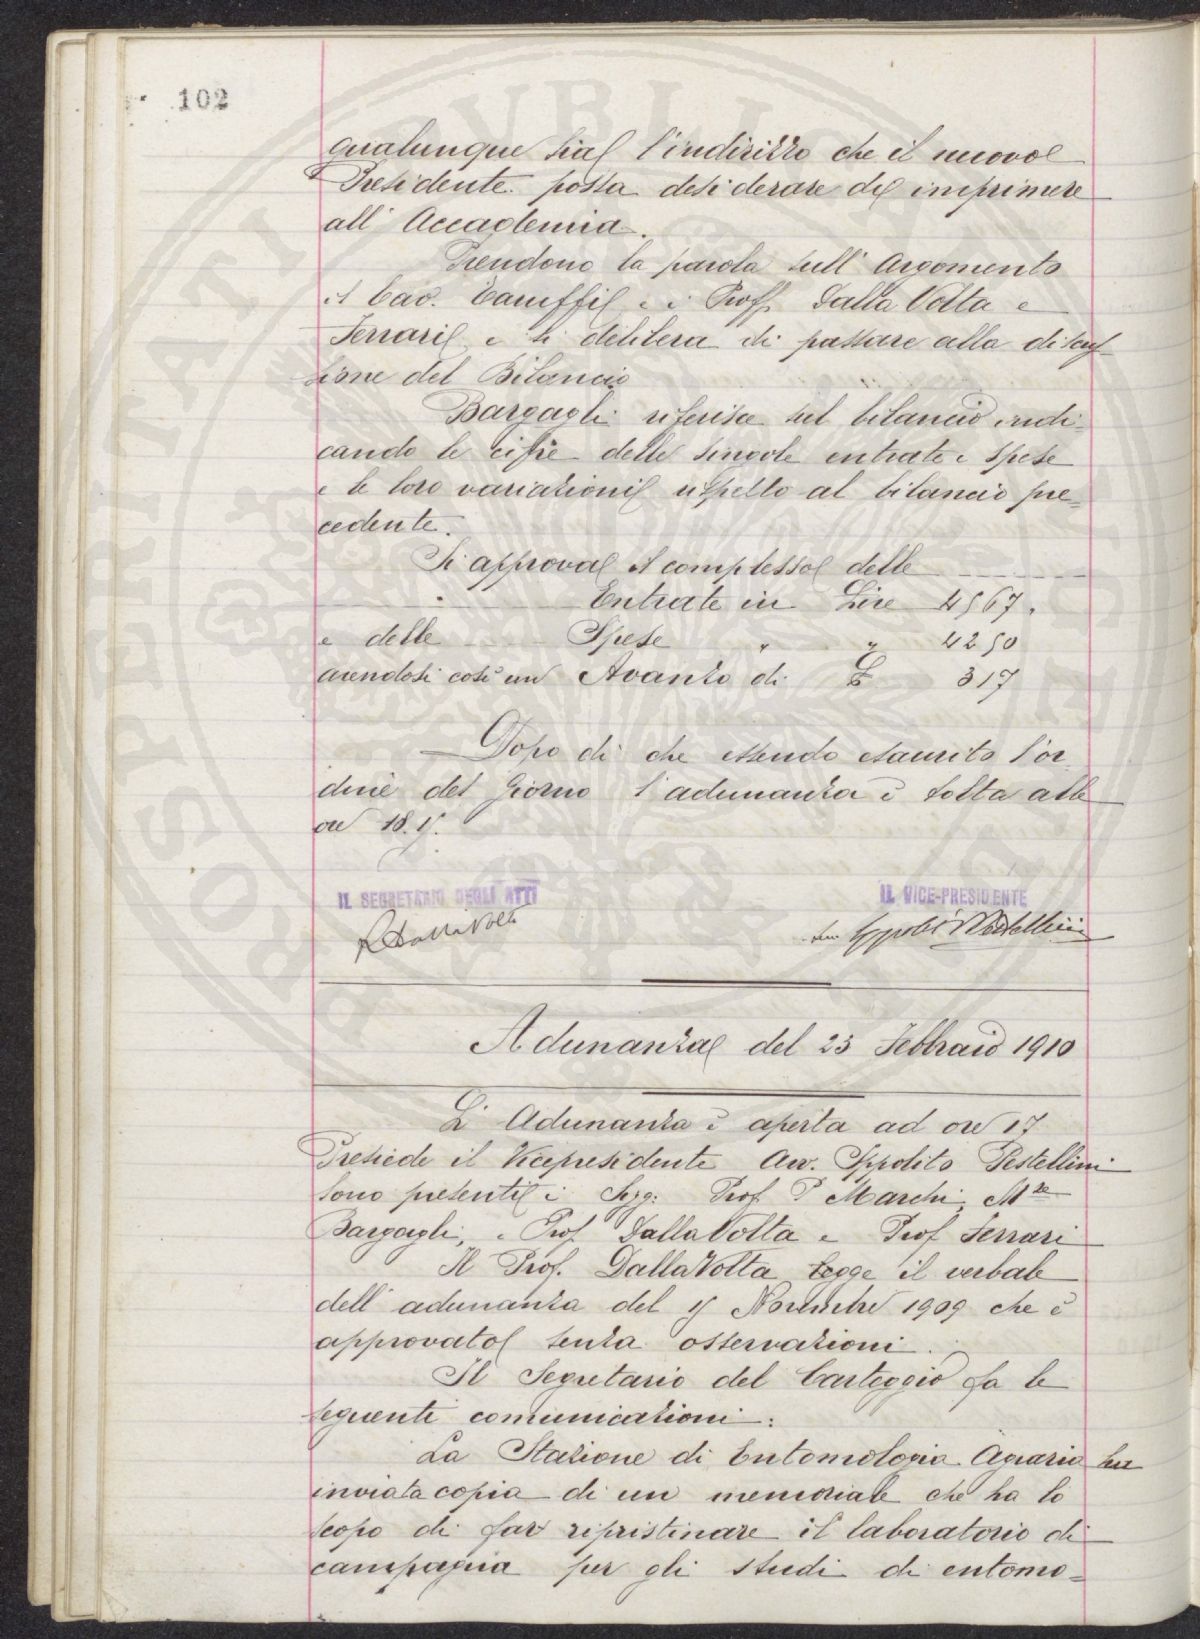 102
qualunque sia l'indirizzo che il nuovo
Presidente possa desiderare di imprimere
all' Accademia.
Prendono la parola sull' Argomento
il Cav. e i Proff. Dalla Volta e
Ferrari e si delibera di passare alla discus
sione del Bilancio
Bargagli riferisce sul bilancio indi=
cando le cifre delle singole entrate e spese
e le loro variazioni rispetto al bilancio pre=
cedente.
Si approva il complesso delle
Entrate in Lire 4567.
e delle Spese " " 4250
avendosi così un Avanzo di £ 317
Dopo di che essendo esaurito l'or
dine del Giorno l'adunanza è tolta alle
ore 18.
IL SEGRETARIO DEGLI ATTI
IL VICE-PRESIDENTE
R Dalla Volta
Ippolito Pestellini
Adunanza del 23 Febbraio 1910
L' Adunanza è aperta ad ore 17
Presiede il Vicepresidente Avv. Ippolito Pestellini
sono presenti i Sigg: Prof P Marchi, M.se
Bargagli, e Prof Dalla Volta e Prof Ferrari
Il Prof. Dalla Volta legge il verbale
dell' adunanza del Novembre 1909 che è
approvato senza osservazioni.
Il Segretario del Carteggio fa le
seguenti comunicazioni:
La Stazione di Entomologia Agraria ha
inviata copia di un memoriale che ha lo
scopo di far ripristinare il laboratorio di
campagna per gli studi di entomo=